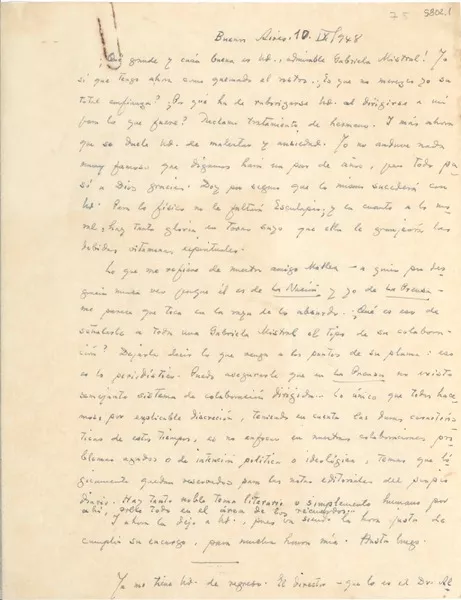 75 5802.1
Buenos Aires, 10. IX/948
¡Qué grande y cuán buena es Ud., admirable Gabriela Mistral! Yo
sí que tengo ahora como quemando el rostro. ¿Es que no merezco yo su
total confianza? ¿Por qué ha de ruborizarse Ud. al dirigirse a mí
para lo que fuere? Reclamo tratamiento de hermano. Y más ahora
que se duele Ud. de malestar y ansiedad. Yo no anduve nada
muy famoso que digamos hará un par de años, pero todo pa-
só a Dios gracias. Doy por seguro que lo mismo sucederá con
Ud. Para lo físico no le faltará Esculapio; y en cuanto a lo mo-
ral, hay tanta gloria en torno suyo que ella le granjeará las
debidas vitaminas espirituales.
Lo que me refiere de nuestro amigo Mallea - a quien por des-
gracia nunca veo porque él es de La Nación y yo de La Prensa -
me parece que toca en la raya de lo absurdo. ¿Qué es eso de
señalarle a toda una Gabriela Mistral el tipo de su colabora-
ción? Dejarla decir lo que venga a los puntos de su pluma: eso
es lo periodístico. Puedo asegurarle que en La Prensa no existe
semejante sistema de colaboración dirigida. Lo único que todos hace-
mos por explicable discreción, teniendo en cuenta las duras caracterís-
ticas de estos tiempos, es no enfocar en nuestras colaboraciones pro-
blemas agudos o de intención política o ideológica, temas que ló-
gicamente quedan reservados para las notas editoriales del propio
diario. Hay tanto noble tema literario o simplemente humano por
ahí, sobre todo en el área de los recuerdos!
Y ahora la dejo a Ud., pues va siendo la hora justa de
cumplir su encargo, para mucha honra mía. Hasta luego.
Ya me tiene Ud. de regreso. El director - que lo es el Dr. Al